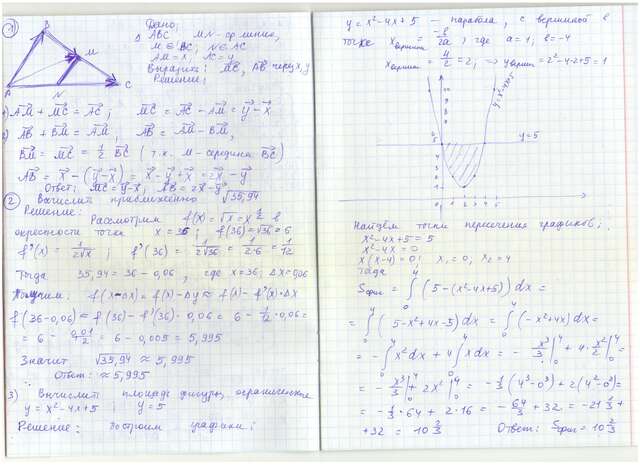 1)
Дано:
Δ ABC MN - ср. линия,
M ∈ BC; N ∈ AC
AM = x, AC = y
Выразить: MB, AB через x, y
Решение:
B
M
A
N
C
1) AM + MC = AC; MC = AC - AM = y - x
2) AB + BM = AM, AB = AM - BM,
BM = MC = 1/2 BC (т.к. M - середина BC)
AB = x - (y - x) = x - y + x = 2x - y
Ответ: MC = y - x, AB = 2x - y
2) Вычислить приближенно √35,94
Решение:
Рассмотрим f(x) = √x = x^1/2 в
окрестности точки x = 36; f(36) = √36 = 6
f'(x) = 1/2√x ; f'(36) = 1/2√36 = 1/2·6 = 1/12
Тогда 35,94 = 36 - 0,06, где x = 36; Δx = 0,06
Получим: f(x - Δx) = f(x) - Δy ≈ f(x) - f'(x)·Δx
f(36 - 0,06) ≈ f(36) - f'(36)·0,06 = 6 - 1/12·0,06 =
= 6 - 0,01/2 = 6 - 0,005 = 5,995
Значит √35,94 ≈ 5,995
Ответ: ≈ 5,995
3) Вычислить площадь фигуры, ограниченной
y = x² - 4x + 5 ; y = 5
Решение: Построим графики:
y = x² - 4x + 5 - парабола, с вершиной в
точке x вершина = -b/2a ; где a = 1, b = -4
x вершина = 4/2 = 2; ⇒ y вершин = 2² - 4·2 + 5 = 1
y = x² - 4x + 5
y = 5
Найдем точки пересечения графиков:
x² - 4x + 5 = 5
x² - 4x = 0
x(x - 4) = 0; x₁ = 0; x₂ = 4
тогда
Sфиг = ∫₀⁴ (5 - (x² - 4x + 5)) dx =
= ∫₀⁴ (5 - x² + 4x - 5) dx = ∫₀⁴ (-x² + 4x) dx =
= - ∫₀⁴ x² dx + 4 ∫₀⁴ x dx = - x³/3 |₀⁴ + 4· x²/2 |₀⁴ =
= - x³/3 |₀⁴ + 2x² |₀⁴ = - 1/3 (4³ - 0³) + 2(4² - 0²) =
= - 1/3 · 64 + 2·16 = - 64/3 + 32 = -21 1/3 +
+ 32 = 10 2/3 Ответ: Sфиг = 10 2/3